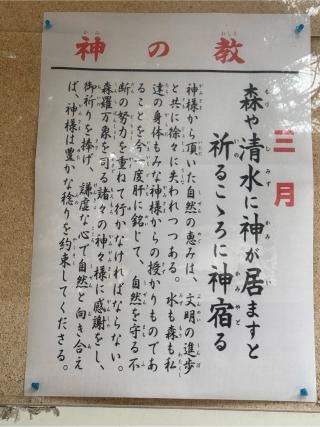 神の教
三月
森や清水に神が居ますと
祈るこゝろに神宿る
神様から頂いた自然の恵みは、文明の進歩
と共に徐々に失われつつある。水も森も私
達の身体もみな神様からの授かりものであ
ることを今一度肝に銘じて、自然を守る不
断の努力を重ねて行かなければならない。
森羅万象を司る諸々の神々様に感謝をし、
御祈りを捧げ、謙虚な心で自然と向き合え
ば、神様は豊かな稔りを約束してくださる。